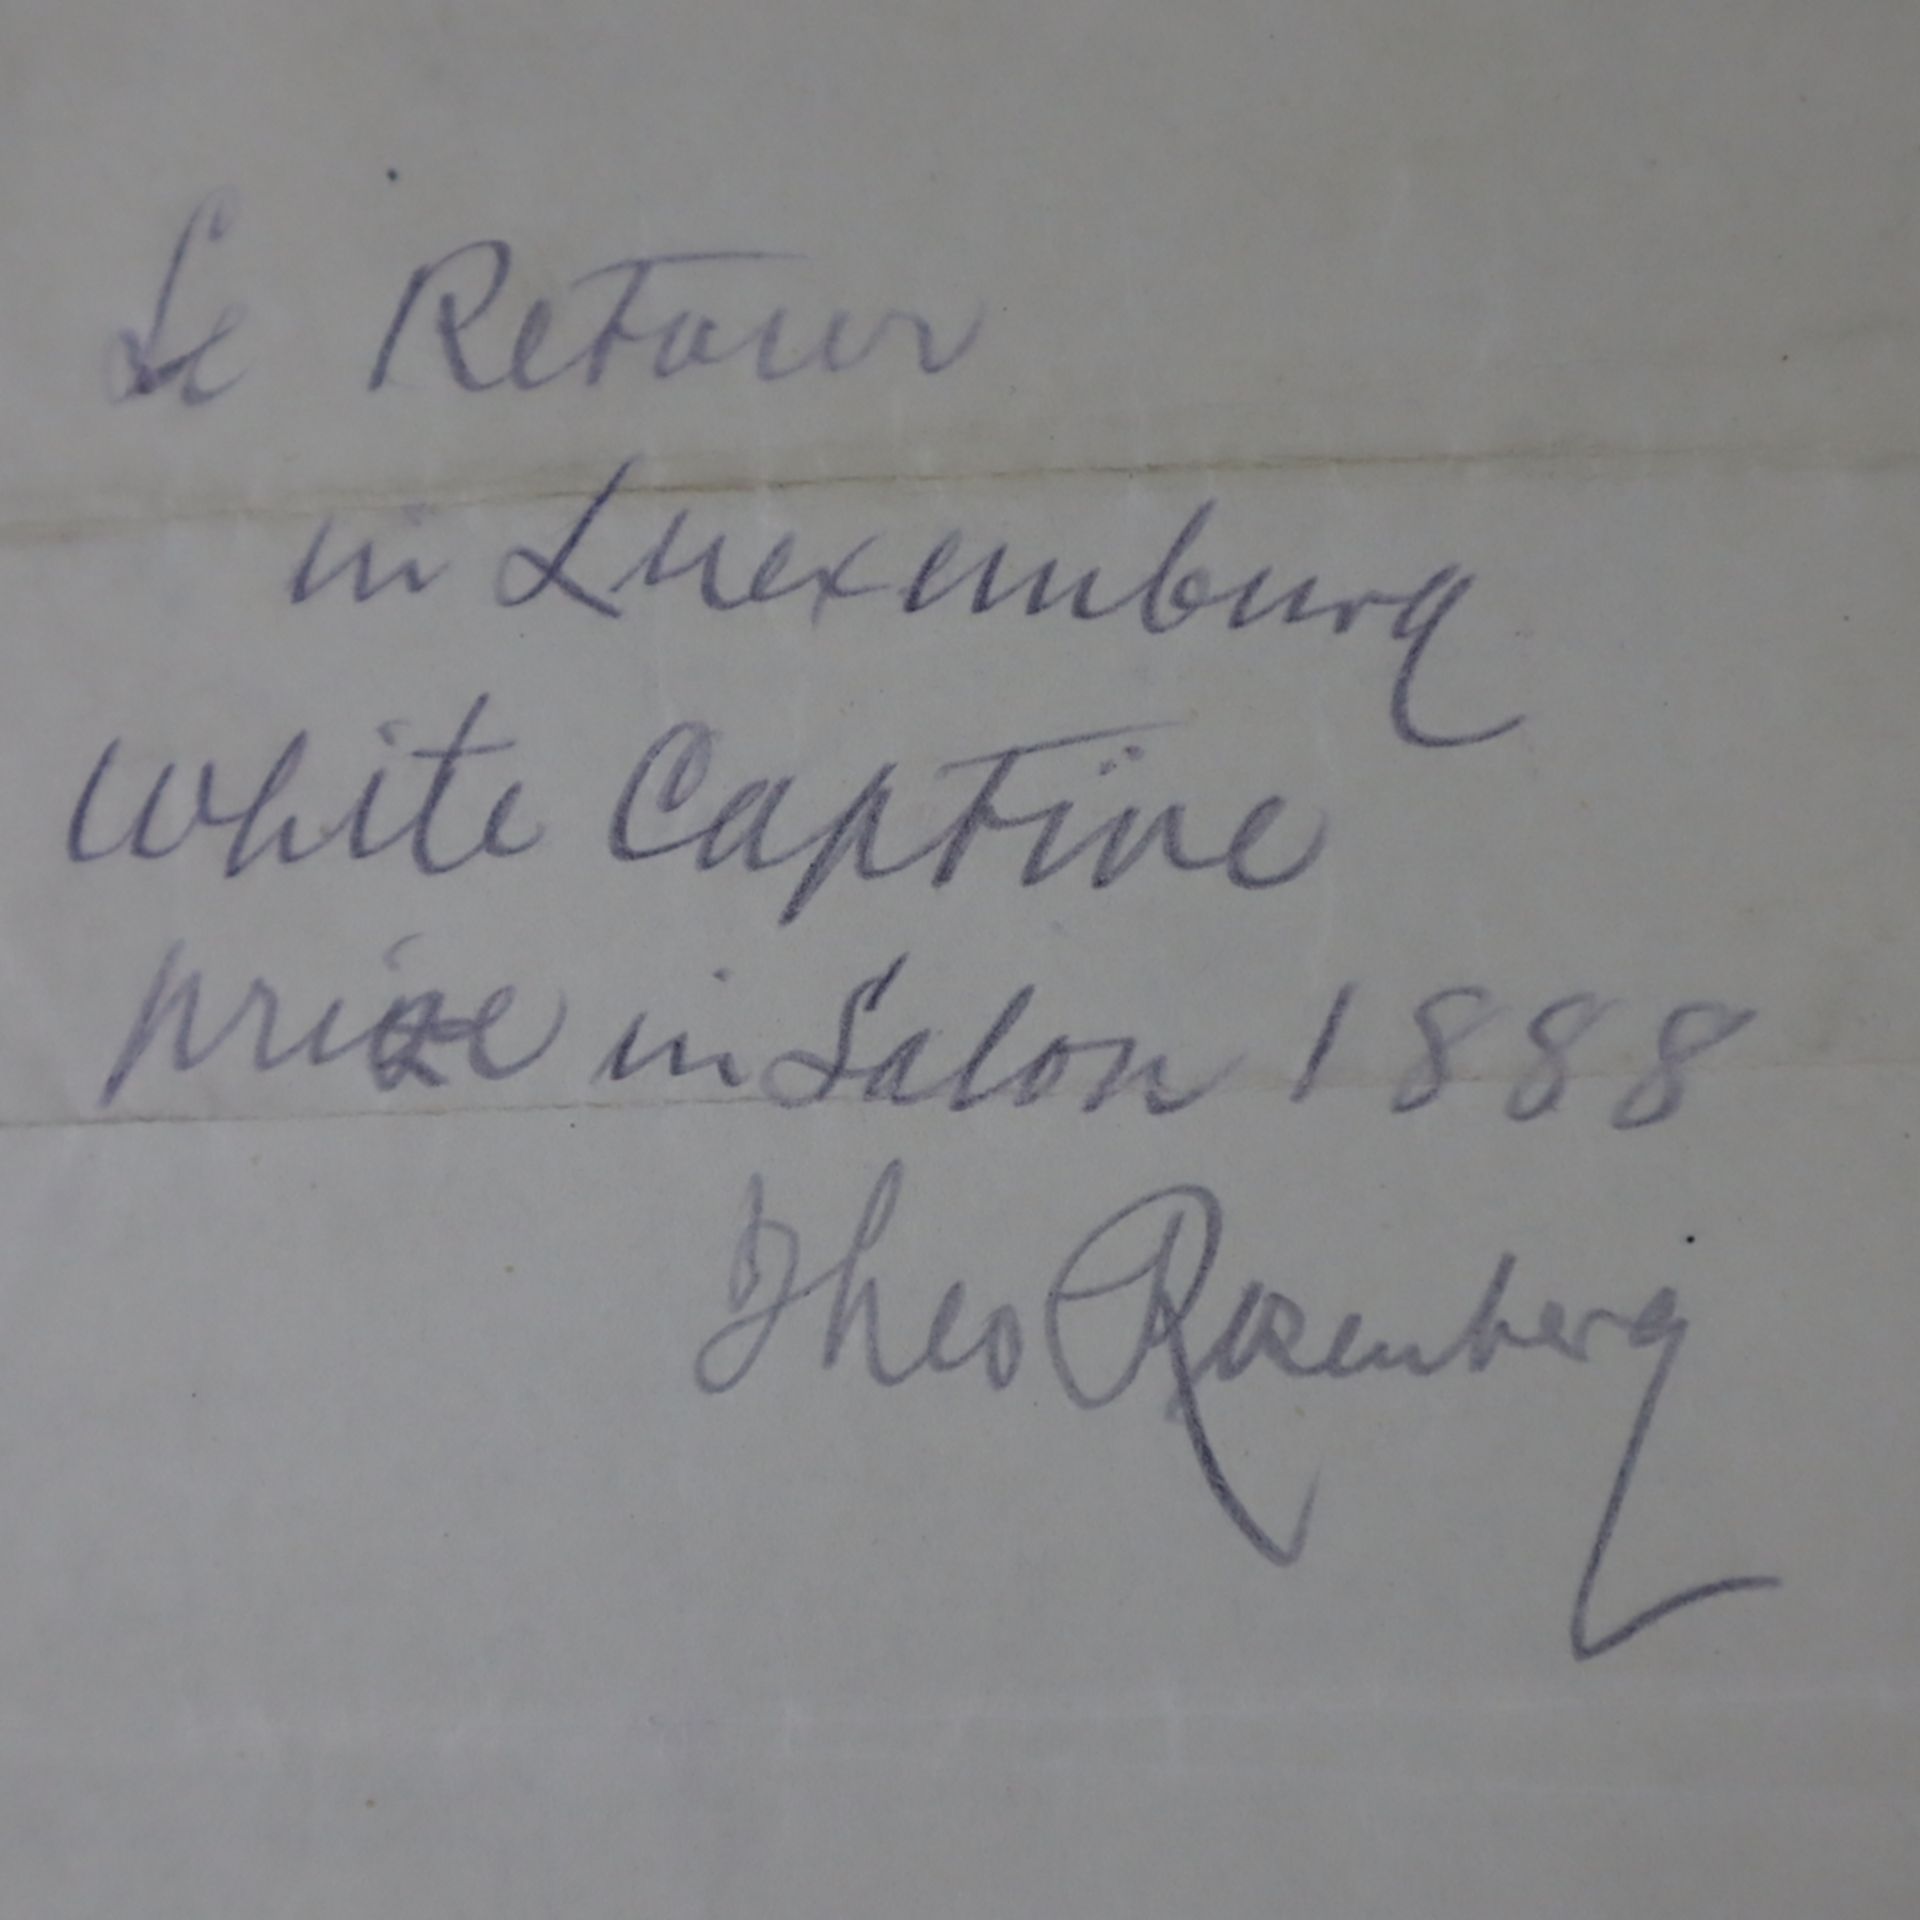 Le Retour
in Luexemburg
White Captive
prize in Salon 1888
Theo Rosenberg